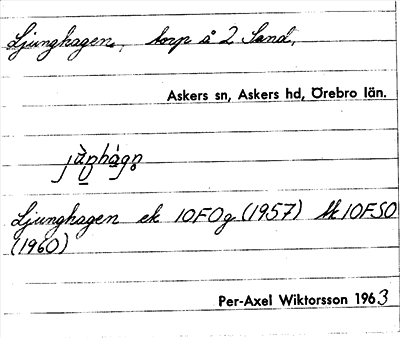 Ljunghagen, torp å 2 Sand,
Askers sn, Askers hd, Örebro län.
Ljunghagen ek 10F0g (1957) Mk 10F50
(1960)
Per-Axel Wiktorsson 1963